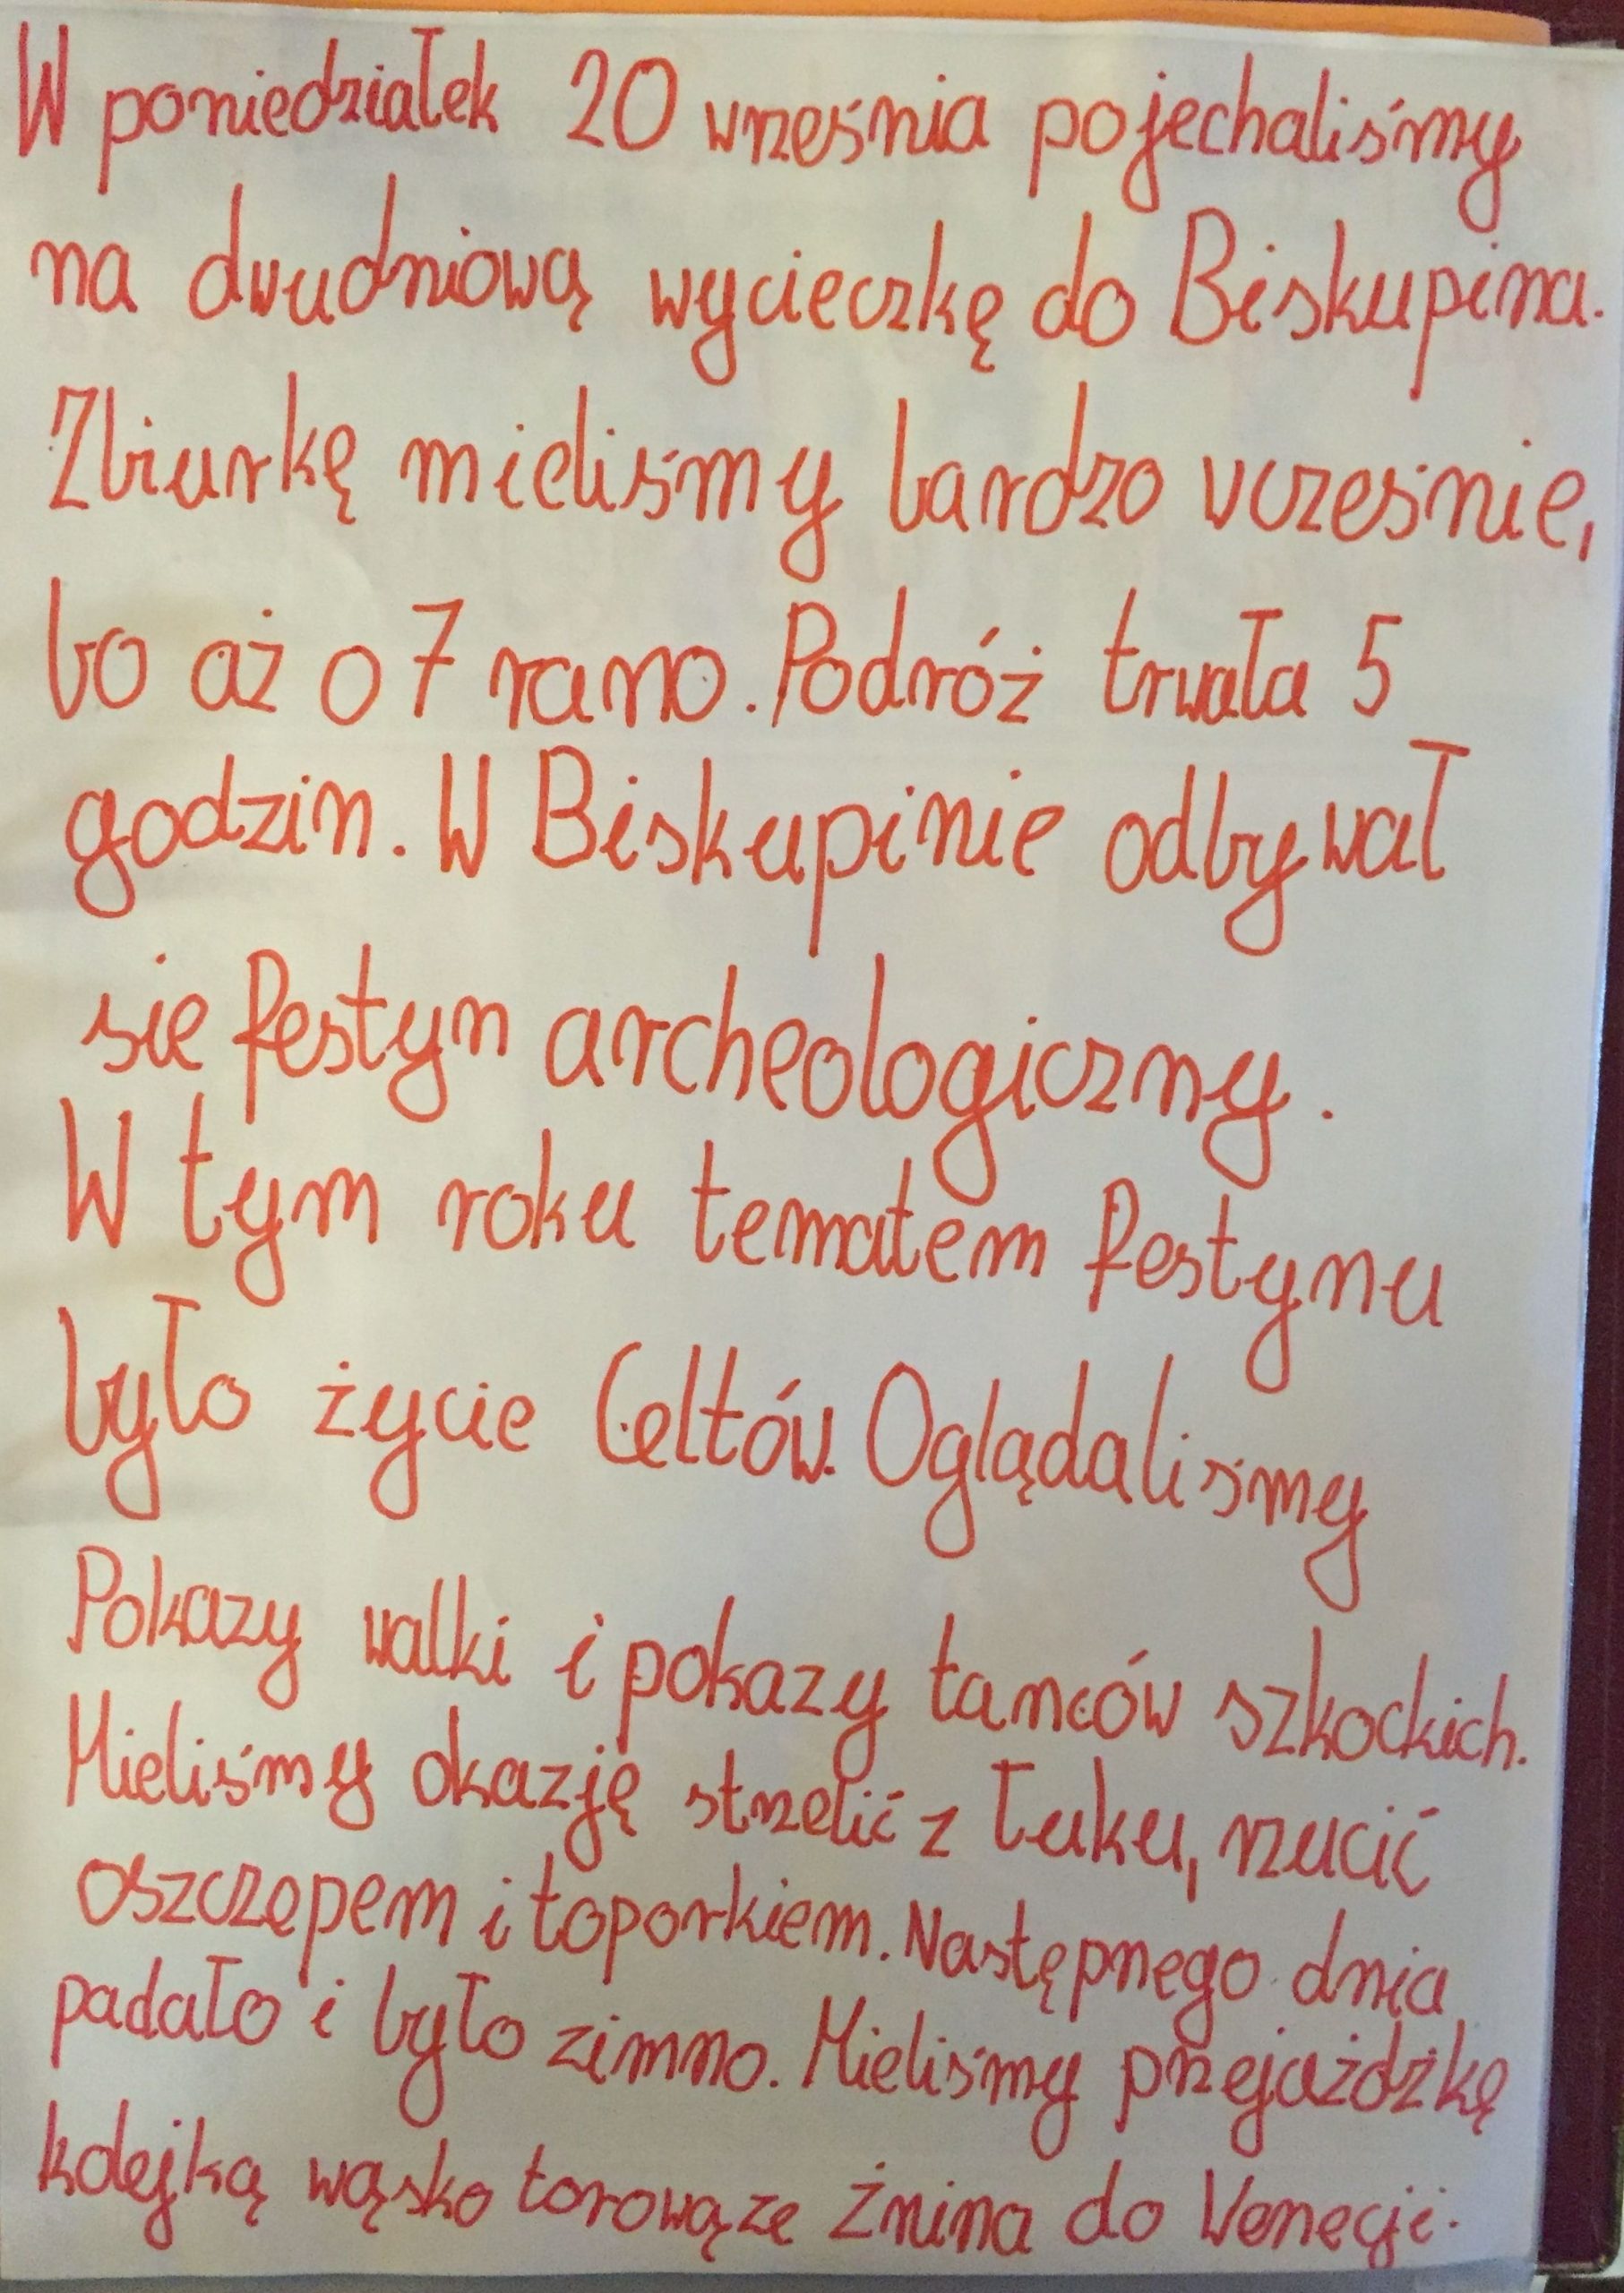 W poniedziałek 20 września pojechaliśmy
na dwudniową wycieczkę do Biskupina.
Zbiurkę mieliśmy bardzo wcześnie,
bo aż o 7 rano. Podróż trwała 5
godzin. W Biskupinie odbywał
sie festyn archeologiczny.
W tym roku tematem festynu
było życie Celtów. Oglądaliśmy
Pokazy walki i pokazy tanców szkockich.
Mieliśmy okazję strzelić z łuku, rzucić
oszczepem i toporkiem. Następnego dnia
padało i było zimno. Mieliśmy przejażdżkę
kolejką wąsko torową ze Żnina do Wenecji.